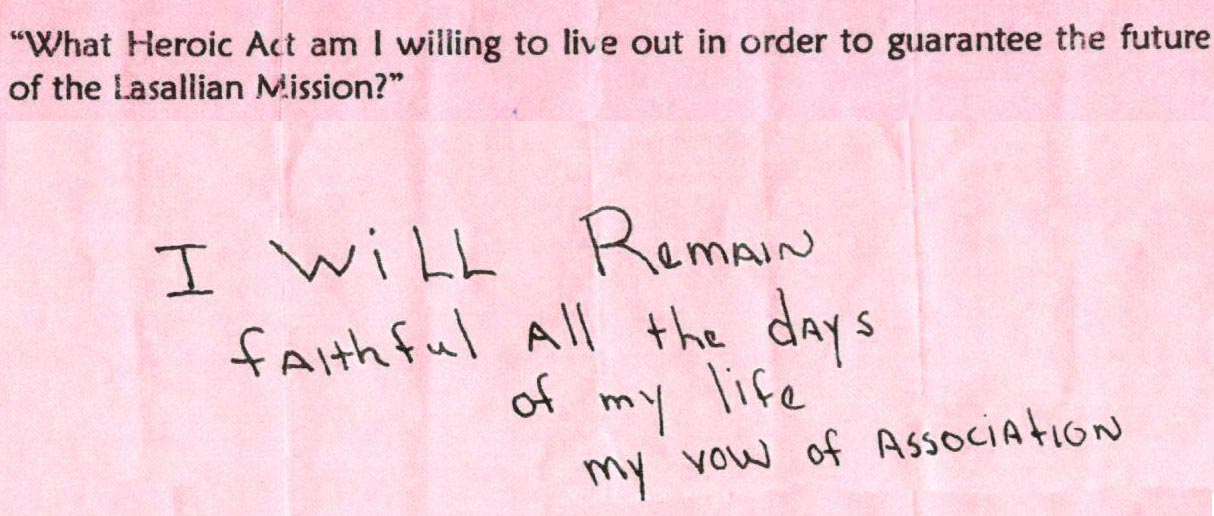 “What Heroic Act am I willing to live out in order to guarantee the future
of the Lasallian Mission?”
I WiLL RemAIN
fAIthful All the dAys
of my life
my vow of AssociAtION